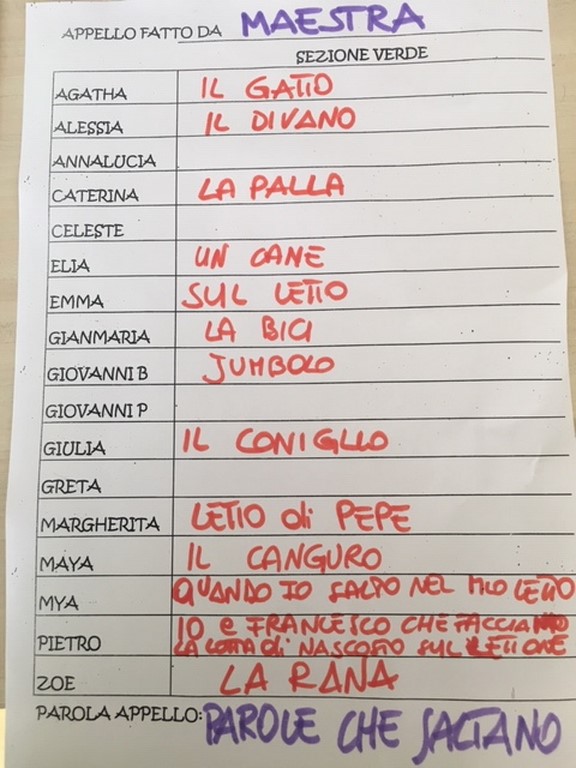 APPELLO FATTO DA MAESTRA
SEZIONE VERDE
AGATHA IL GATTO
ALESSIA IL DIVANO
ANNALUCIA
CATERINA LA PALLA
CELESTE
ELIA UN CANE
EMMA SUL LETTO
GIANMARIA LA BICI
GIOVANNI B JUMBOLO
GIOVANNI P
GIULIA IL CONIGLIO
GRETA
MARGHERITA LETTO di PEPE
MAYA IL CANGURO
MYA QUANDO IO SALTO NEL MIO LETTO
PIETRO IO e FRANCESCO CHE FACCIAMO
LA LOTTA di NASCOSTO SUL LETTONE
ZOE LA RANA
PAROLA APPELLO: PAROLE CHE SALTANO